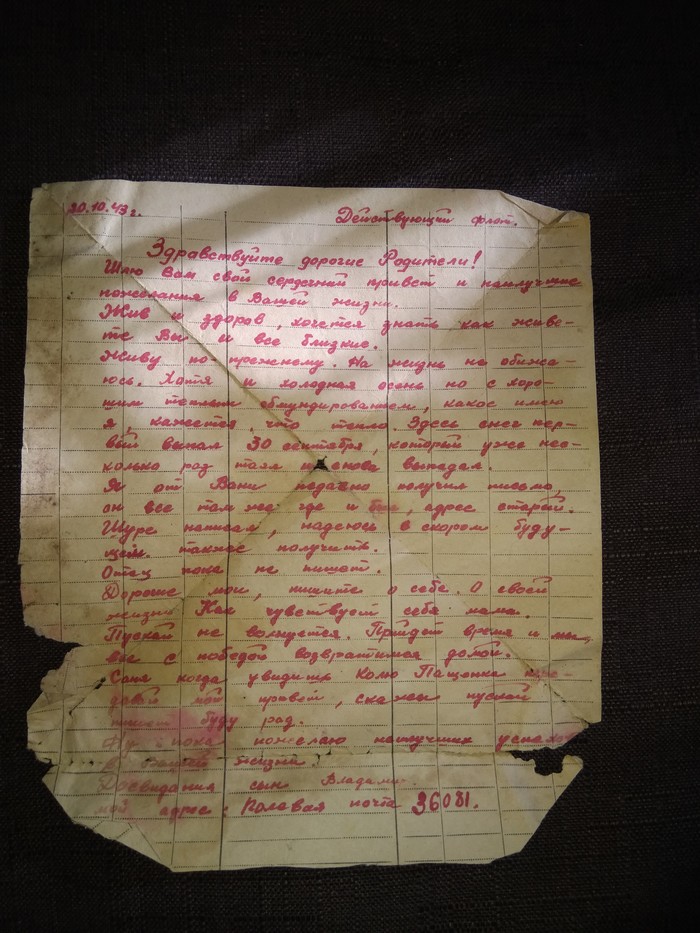 20.10.43 г. Действующий флот.
Здравствуйте дорогие Родители!
Шлю Вам свой сердечный привет и наилучшие
пожелания в Вашей жизни.
Жив и здоров, хочется знать как живе-
те Вы и все близкие.
Живу по-прежнему. На жизнь не обижа-
юсь. Хотя и холодная осень но с хоро-
шим теплым обмундированием, какое имею
я, кажется, что тепло. Здесь снег пер-
вый выпал 30 сентября, который уже нес-
колько раз таял и снова выпадал.
Я от Вани недавно получил письмо,
он все там же где и был, адрес старый.
Шуре написал, надеюсь в скором буду-
щем также получить.
Отец пока не пишет.
Дорогие мои, пишите о себе. О своей
жизни. Как чувствует себя мама.
Пускай не волнуется. Прийдет время и мы,
все с победой возвратимся домой.
Соня когда увидишь Колю Пащенко пере-
давай мой привет, скажи пускай
пишет буду рад.
Ну пока пожелаю наилучших успехов
в Вашей жизни.
Досвидания сын Владимир.
мой адрес: Полевая почта 36081.